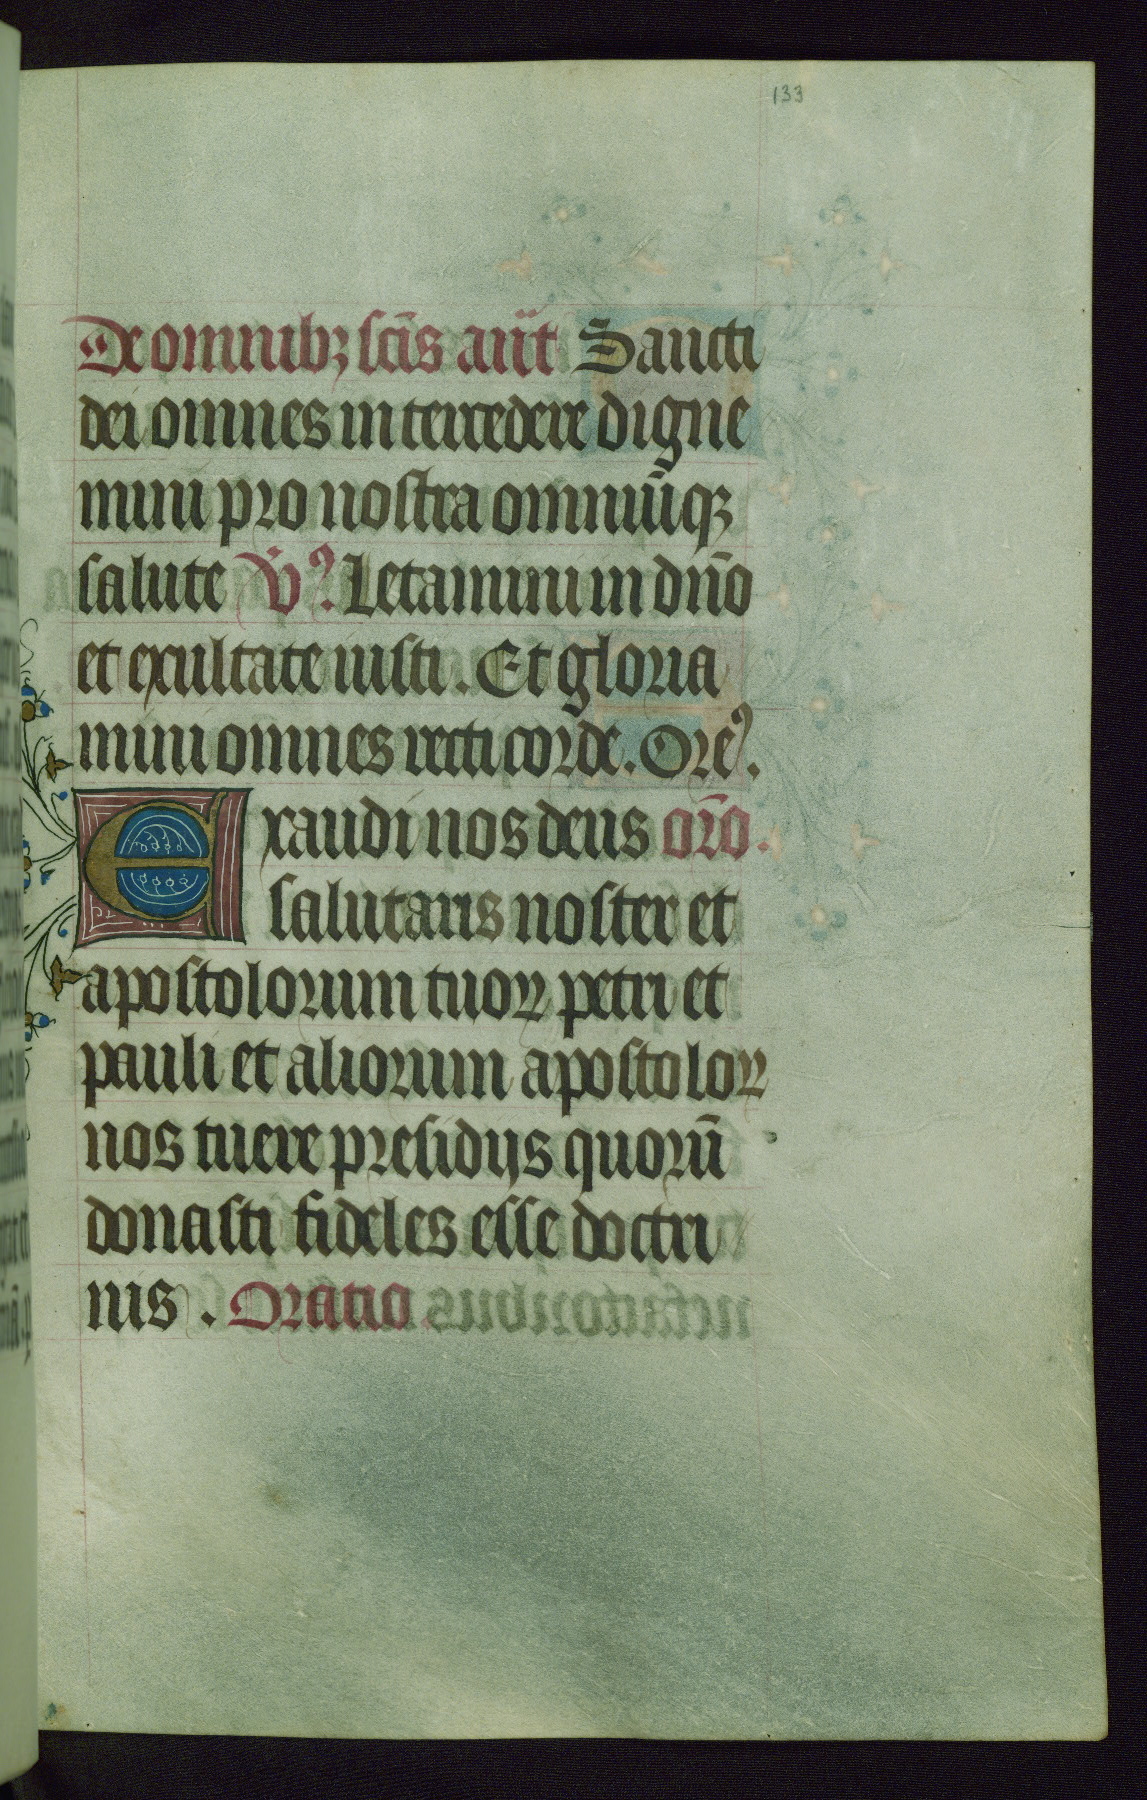 133
De omnibꝫ sc̄is an̄t Sancti
dei omnes intercedere digne
mini pro nostra omniūqꝫ
salute V̄ꝰ Letamini in dn̄o
et exultate iusti. Et gloria
mini omnes recti corde. Oreꝰ.
Exaudi nos deus or̄o.
salutaris noster et
apostolorum tuoꝝ petri et
pauli et aliorum apostoloꝝ
nos tuere presidijs quorū
donasti fideles esse doctri
nis. Oratio.